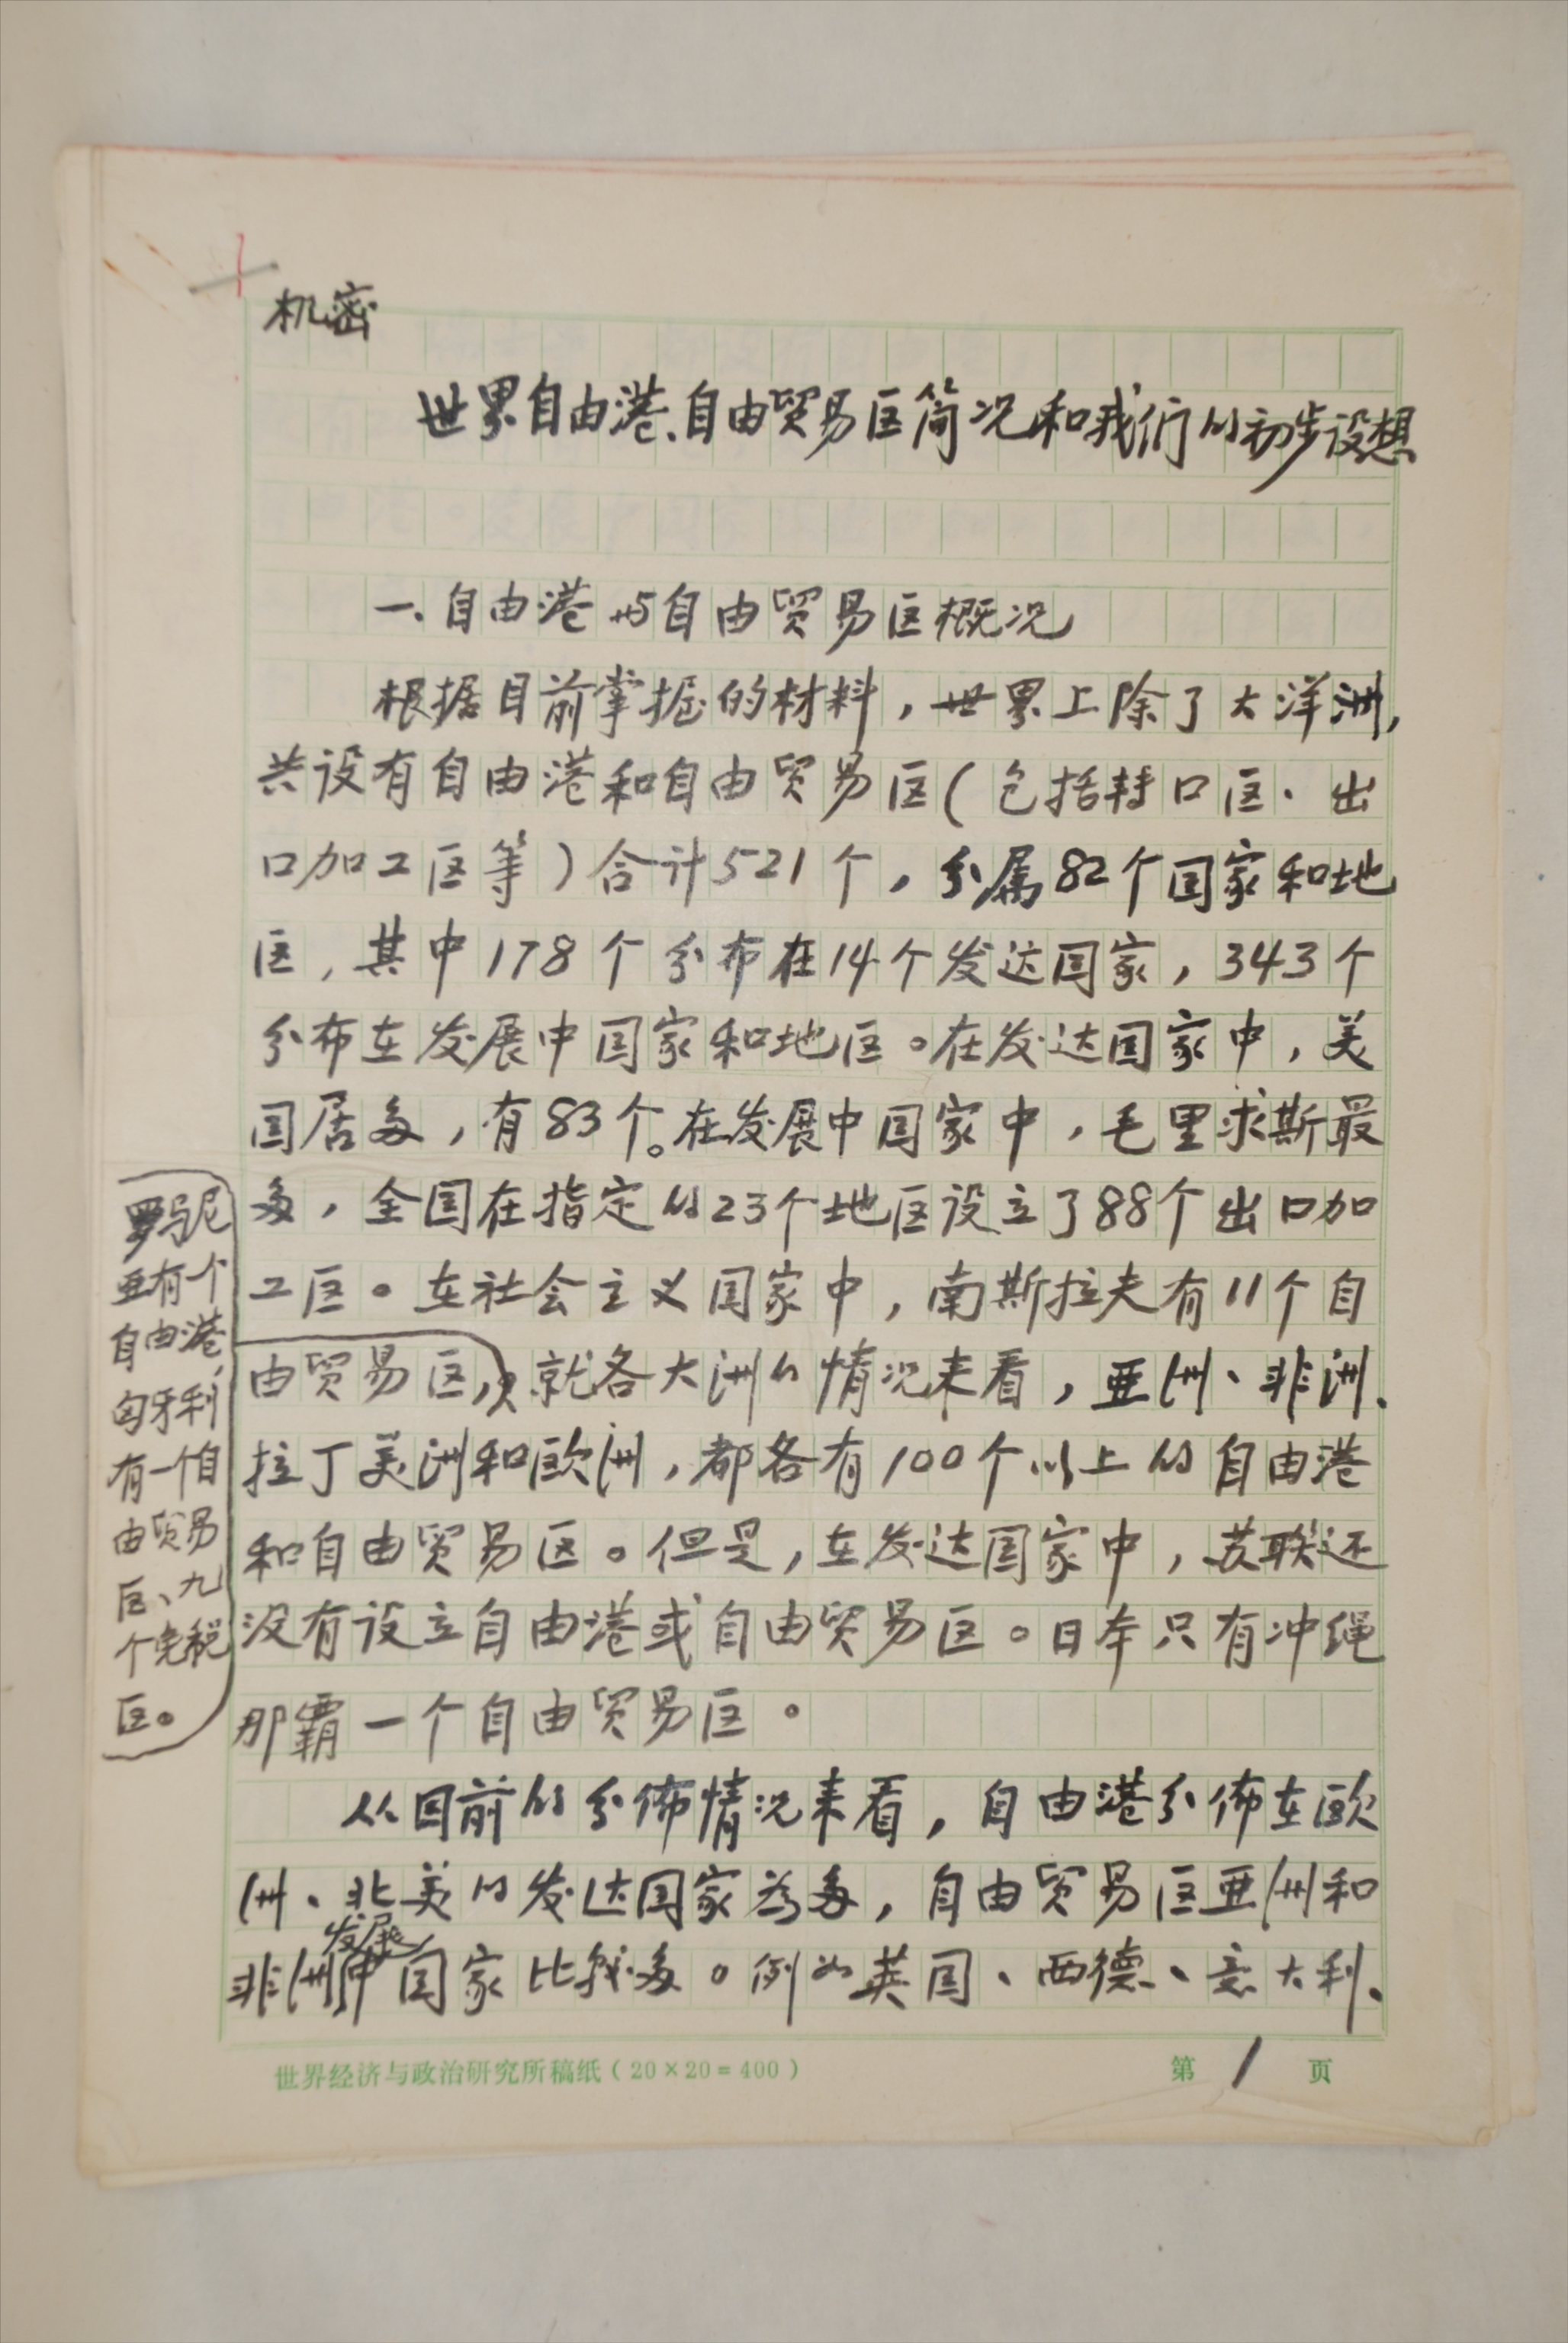 机密
世界自由港、自由贸易区简况和我们的初步设想
一、自由港与自由贸易区概况
根据目前掌握的材料，世界上除了大洋洲，
共设有自由港和自由贸易区（包括转口区、出
口加工区等）合计521个，分属82个国家和地
区，其中178个分布在14个发达国家，343个
分布在发展中国家和地区。在发达国家中，美
国居多，有83个。在发展中国家中，毛里求斯最
多，全国在指定的23个地区设立了88个出口加
工区。在社会主义国家中，南斯拉夫有11个自
由贸易区，
罗马尼
亚有个
自由港，
匈牙利
有一个自
由贸易
区、九
个免税
区。
就各大洲的情况来看，亚洲、非洲、
拉丁美洲和欧洲，都各有100个以上的自由港
和自由贸易区。但是，在发达国家中，苏联还
没有设立自由港或自由贸易区。日本只有冲绳
那霸一个自由贸易区。
从目前的分佈情况来看，自由港分佈在欧
洲、北美的发达国家为多，自由贸易区亚洲和
非洲发展中国家比较多。例如英国、西德、意大利、
世界经济与政治研究所稿纸（20×20=400）
第1页